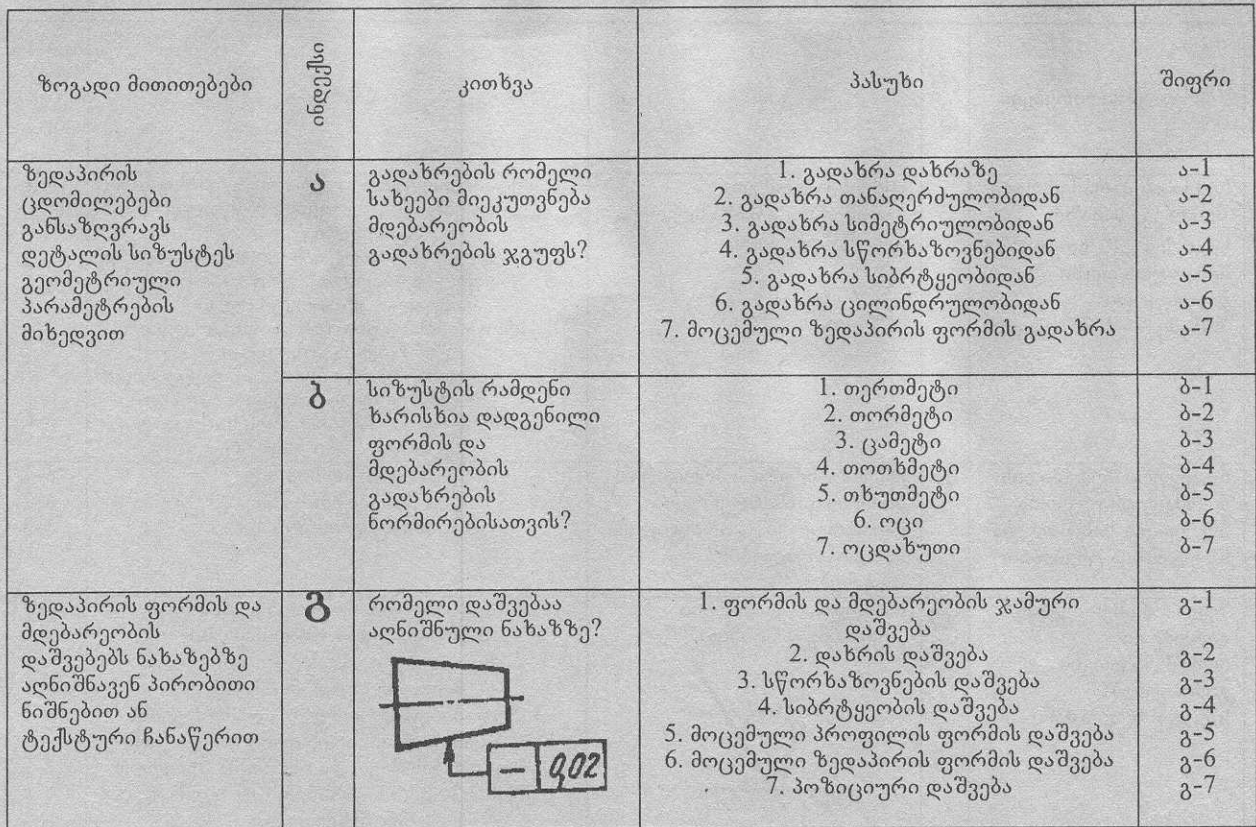 ზოგადი მითითებები
ინდექსი
კითხვა
პასუხი
შიფრი
ზედაპირის
ცდომილებები
განსაზღვრავს
დეტალის სიზუსტეს
გეომეტრიული
პარამეტრების
მიხედვით
ა
გადახრების რომელი
სახეები მიეკუთვნება
მდებარეობის
გადახრების ჯგუფს?
1. გადახრა დახრაზე
2. გადახრა თანაღერძულობიდან
3. გადახრა სიმეტრიულობიდან
4. გადახრა სწორხაზოვნებიდან
5. გადახრა სიბრტყეობიდან
6. გადახრა ცილინდრულობიდან
7. მოცემული ზედაპირის ფორმის გადახრა
ა-1
ა-2
ა-3
ა-4
ა-5
ა-6
ა-7
ბ
სიზუსტის რამდენი
ხარისხია დადგენილი
ფორმის და
მდებარეობის
გადახრების
ნორმირებისათვის?
1. თერთმეტი
2. თორმეტი
3. ცამეტი
4. თოთხმეტი
5. თხუთმეტი
6. ოცი
7. ოცდახუთი
ბ-1
ბ-2
ბ-3
ბ-4
ბ-5
ბ-6
ბ-7
ზედაპირის ფორმის და
მდებარეობის
დაშვებებს ნახაზებზე
აღნიშნავენ პირობითი
ნიშნებით ან
ტექსტური ჩანაწერით
გ
რომელი დაშვებაა
აღნიშნული ნახაზზე?
— 0,02
1. ფორმის და მდებარეობის ჯამური
დაშვება
2. დახრის დაშვება
3. სწორხაზოვნების დაშვება
4. სიბრტყეობის დაშვება
5. მოცემული პროფილის ფორმის დაშვება
6. მოცემული ზედაპირის ფორმის დაშვება
7. პოზიციური დაშვება
გ-1
გ-2
გ-3
გ-4
გ-5
გ-6
გ-7